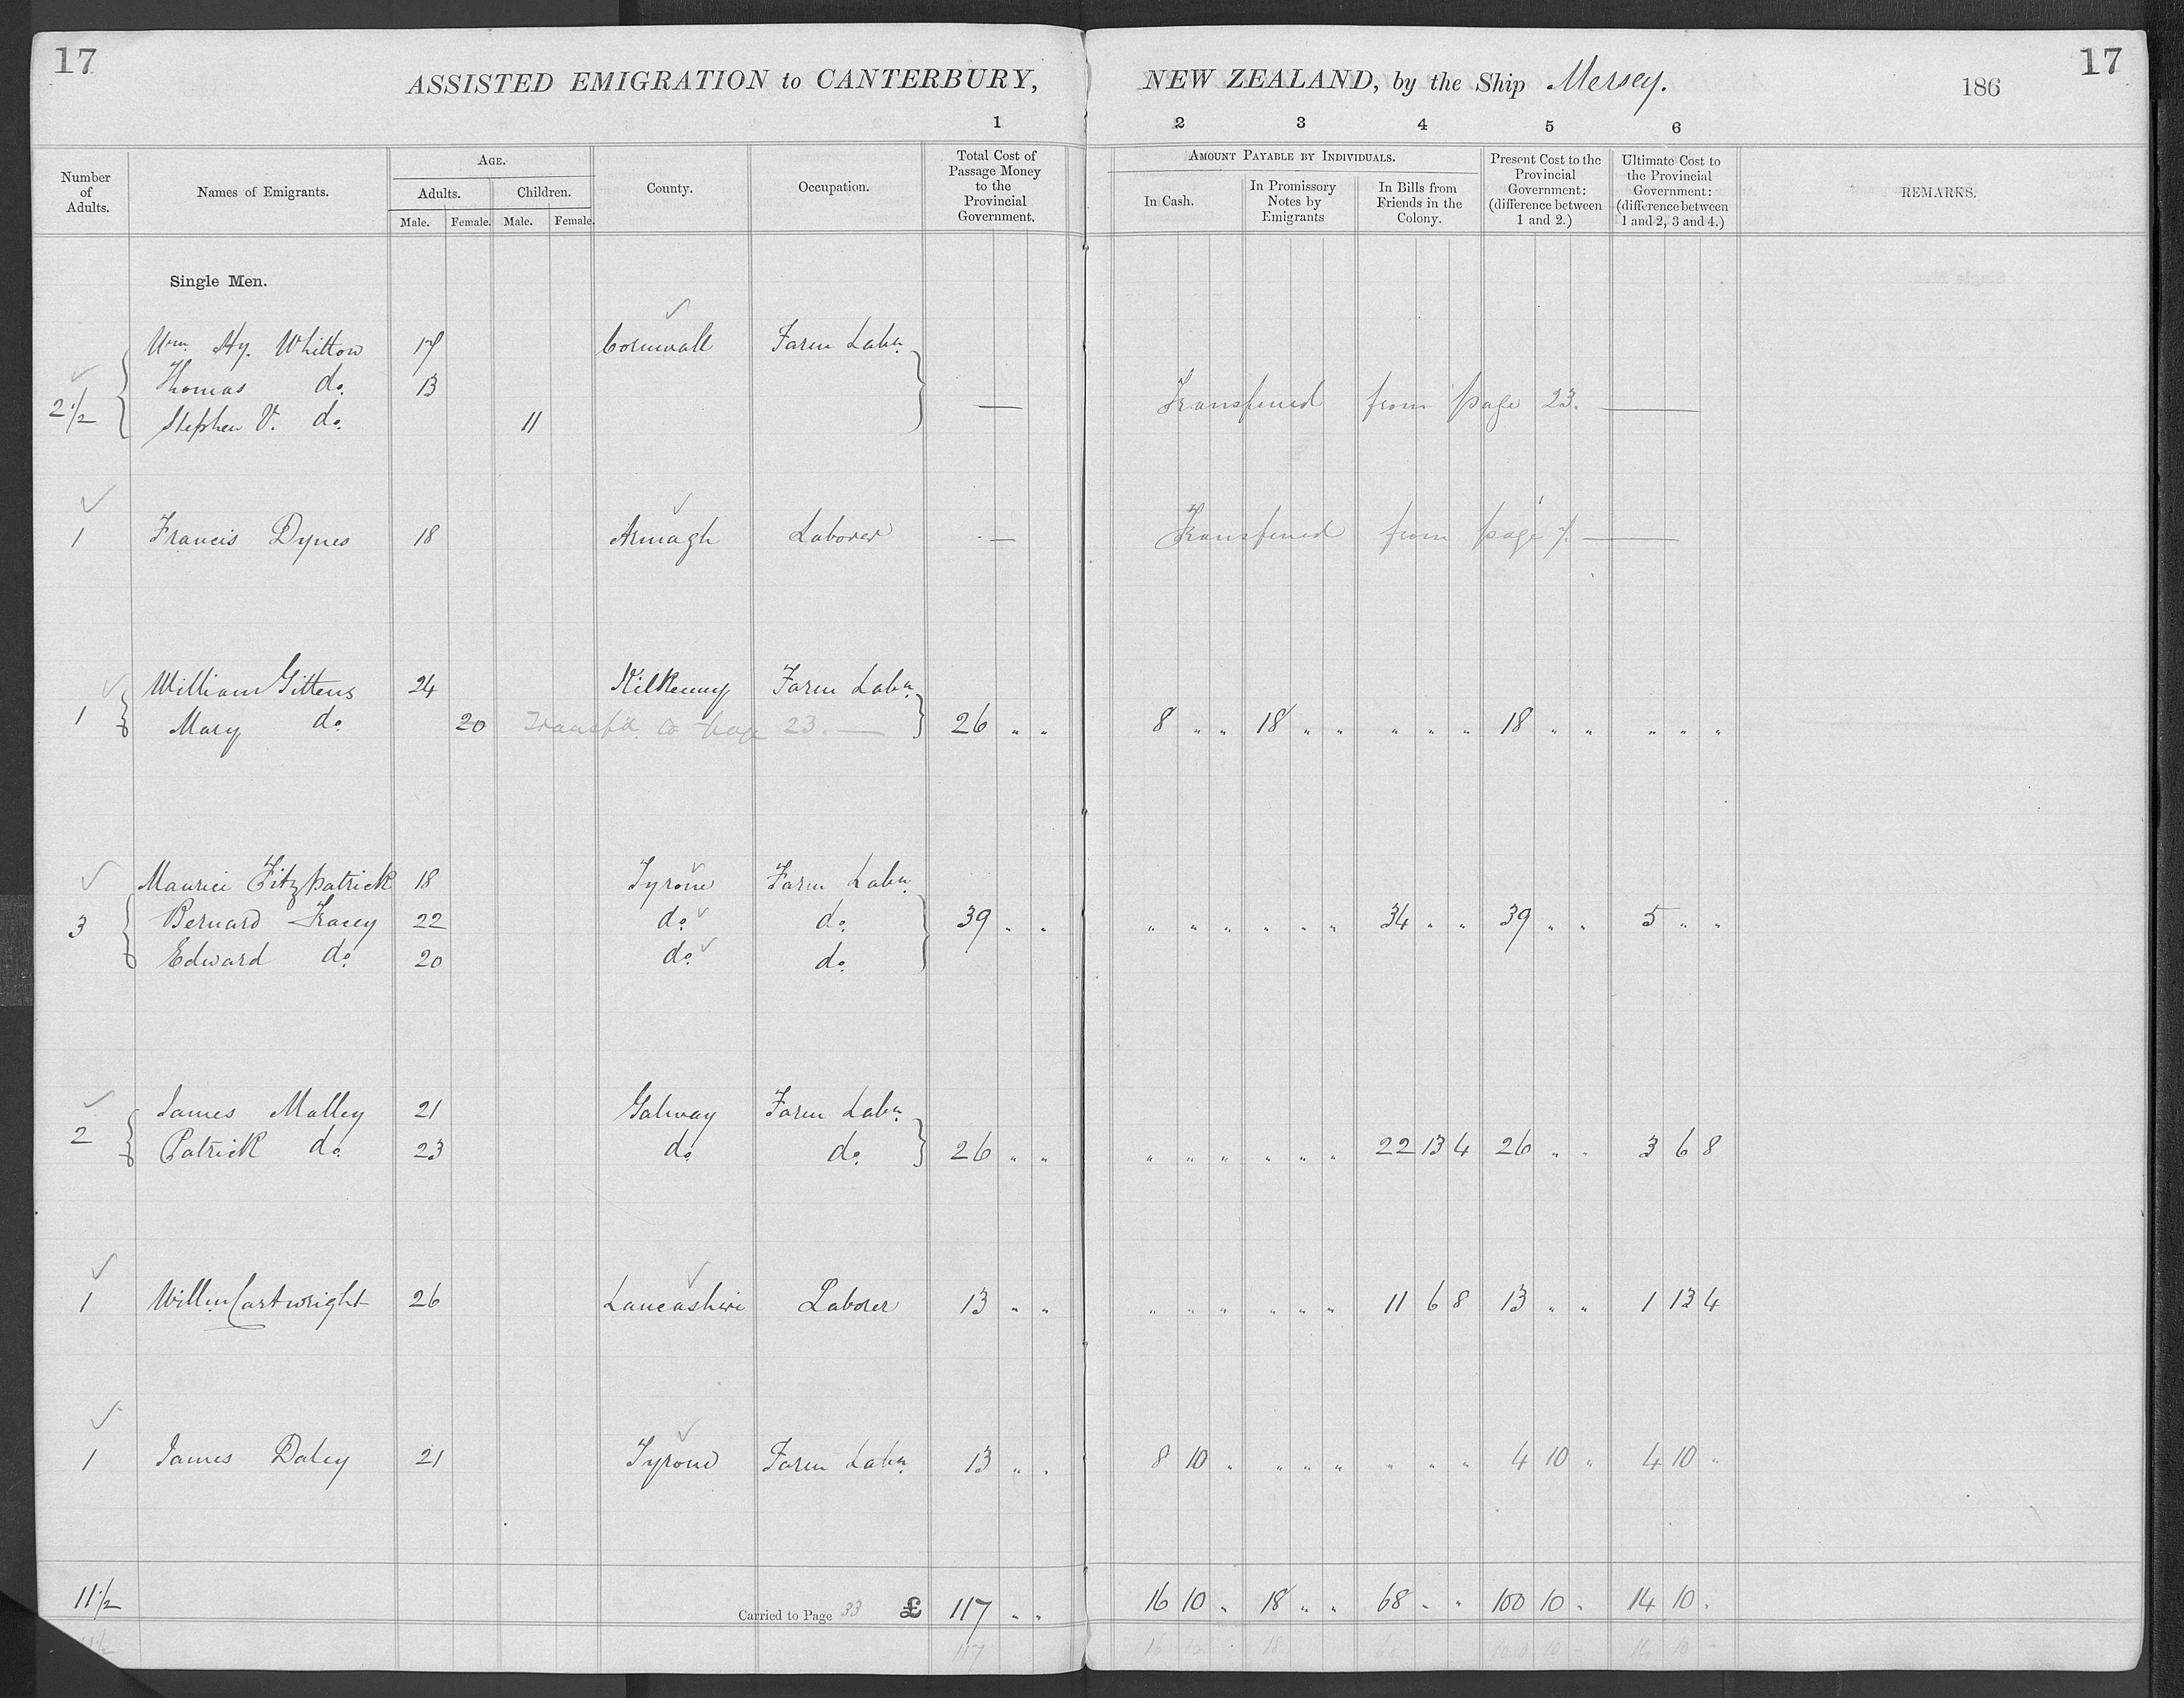 17 17
ASSISTED EMIGRATION to CANTERBURY, NEW ZEALAND, by the Ship Mersey. 186
1 2 3 4 5 6
Number of Adults. Names of Emigrants. AGE. Adults. Male. Female. Children. Male. Female. County. Occupation. Total Cost of Passage Money to the Provincial Government. AMOUNT PAYABLE BY INDIVIDUALS. In Cash. In Promissory Notes by Emigrants In Bills from Friends in the Colony. Present Cost to the Provincial Government: (difference between 1 and 2.) Ultimate Cost to the Provincial Government: (difference between 1 and 2, 3 and 4.) REMARKS.
Single Men.
Wm. Hy. Whitton 17 Cornwall Farm Labr.
2 1/2 Thomas do. 13 — Transferred from page 23. —
Stephen V. do. 11
1 Francis Dynes 18 Armagh Laborer — Transferred from page 7. —
William Gittens 24 Kilkenny Farm Labr.
1 Mary do. 20 Transfd. to page 23. — 26 " " 8 " " 18 " " " " " 18 " " " " "
Maurice Fitzpatrick 18 Tyrone Farm Labr.
3 Bernard Tracey 22 do. do. 39 " " " " " " " " 34 " " 39 " " 5 " "
Edward do. 20 do. do.
James Malley 21 Galway Farm Labr.
2 Patrick do. 23 do. do. 26 " " " " " " " " 22 13 4 26 " " 3 6 8
1 Willm Cartwright 26 Lancashire Laborer 13 " " " " " " " " 11 6 8 13 " " 1 13 4
1 James Daley 21 Tyrone Farm Labr. 13 " " 8 10 " " " " " " " 4 10 " 4 10 "
11 1/2 Carried to Page 33 £ 117 " " 16 10 " 18 " " 68 " " 100 10 " 14 10 "
11 1/2 117 16 10 18 68 100 10 - 14 10 -